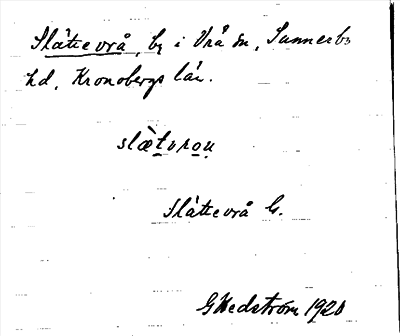 Slättevrå, by i Vrå sn, Sunnerbo
hd, Kronobergs län.
slæ̀tvrou̯
Slättevrå G.
G Hedström 1920